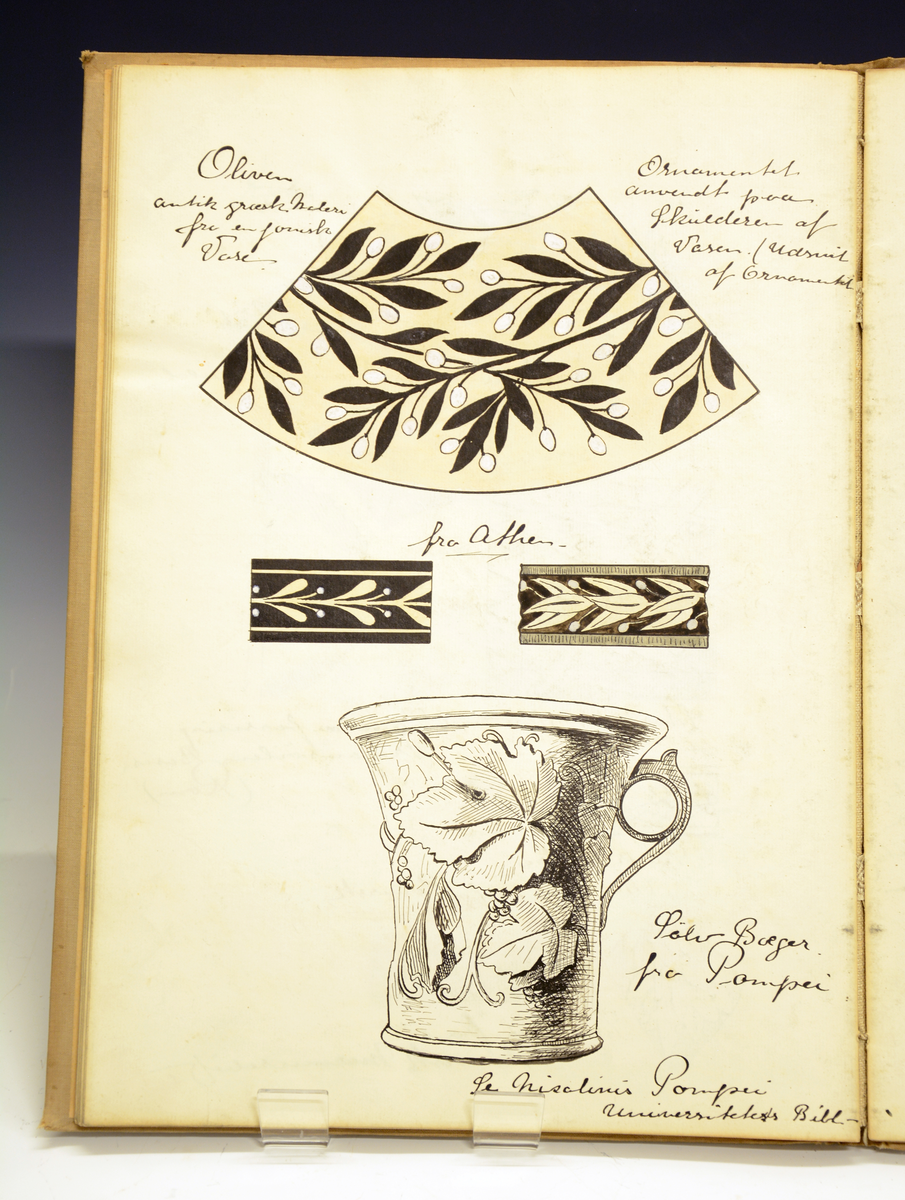 Oliven
antik græsk Maleri
fra en jonisk
Vase
Ornamentet
anvendt paa
Skulderen af
Vasen. (Udsnit
af Ornamentet
fra Athen
Sølv Bæger
fra Pompei
Se Nisolinis Pompei
Universitetets Bibl